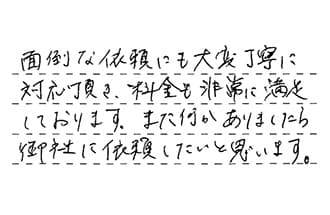 面倒な依頼にも大変丁寧に
対応頂き、料金も非常に満足
しております。また何かありましたら
御社に依頼したいと思います。